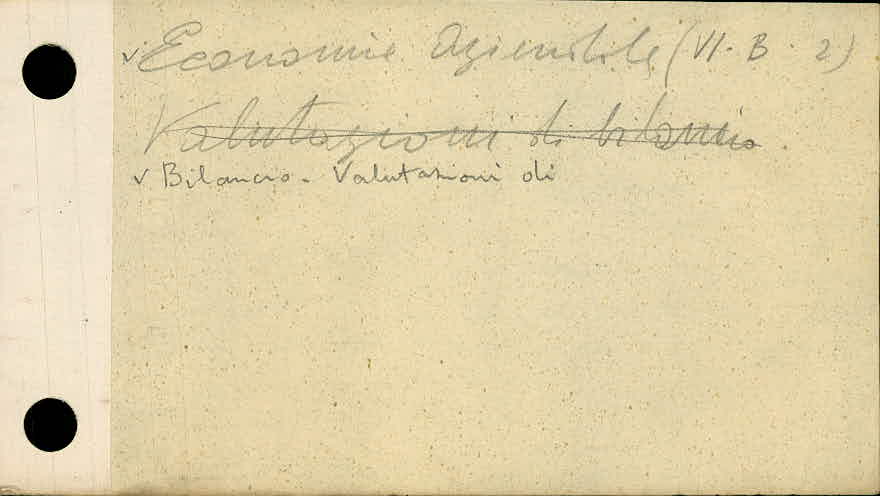 ✓ Economia aziendale (VI. B. 2)
Valutazioni di bilancio.
✓ Bilancio - Valutazioni di